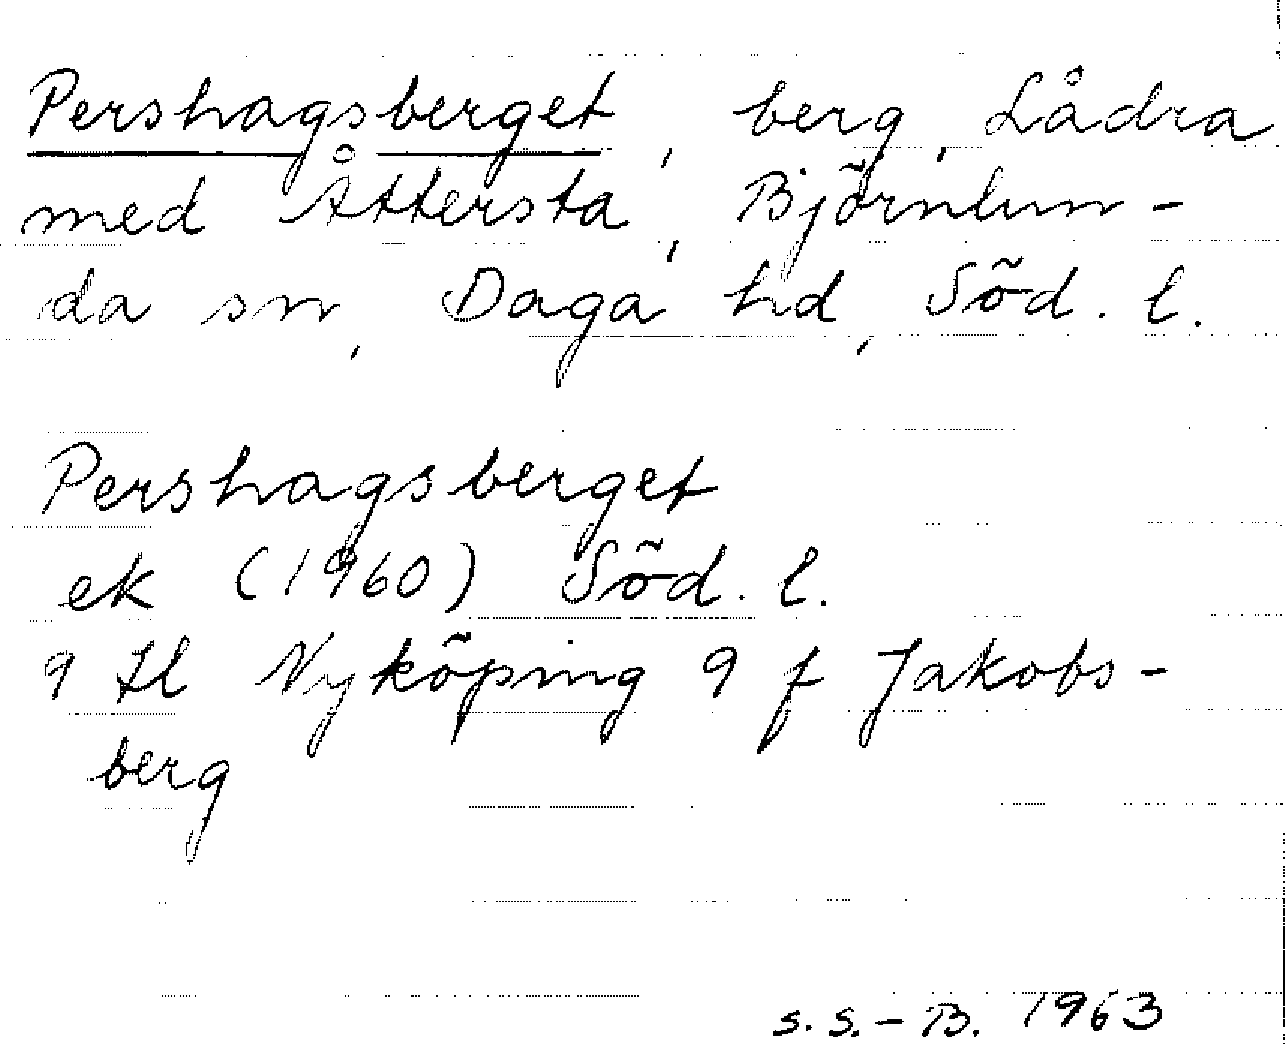 Pershagsberget, berg, Lådra
med Åttersta, Björnlun-
da sn, Daga hd, Söd. l.
Pershagsberget
ek (1960) Söd. l.
9 Hl Nyköping 9 f Jakobs-
berg
S. S. - B. 1963